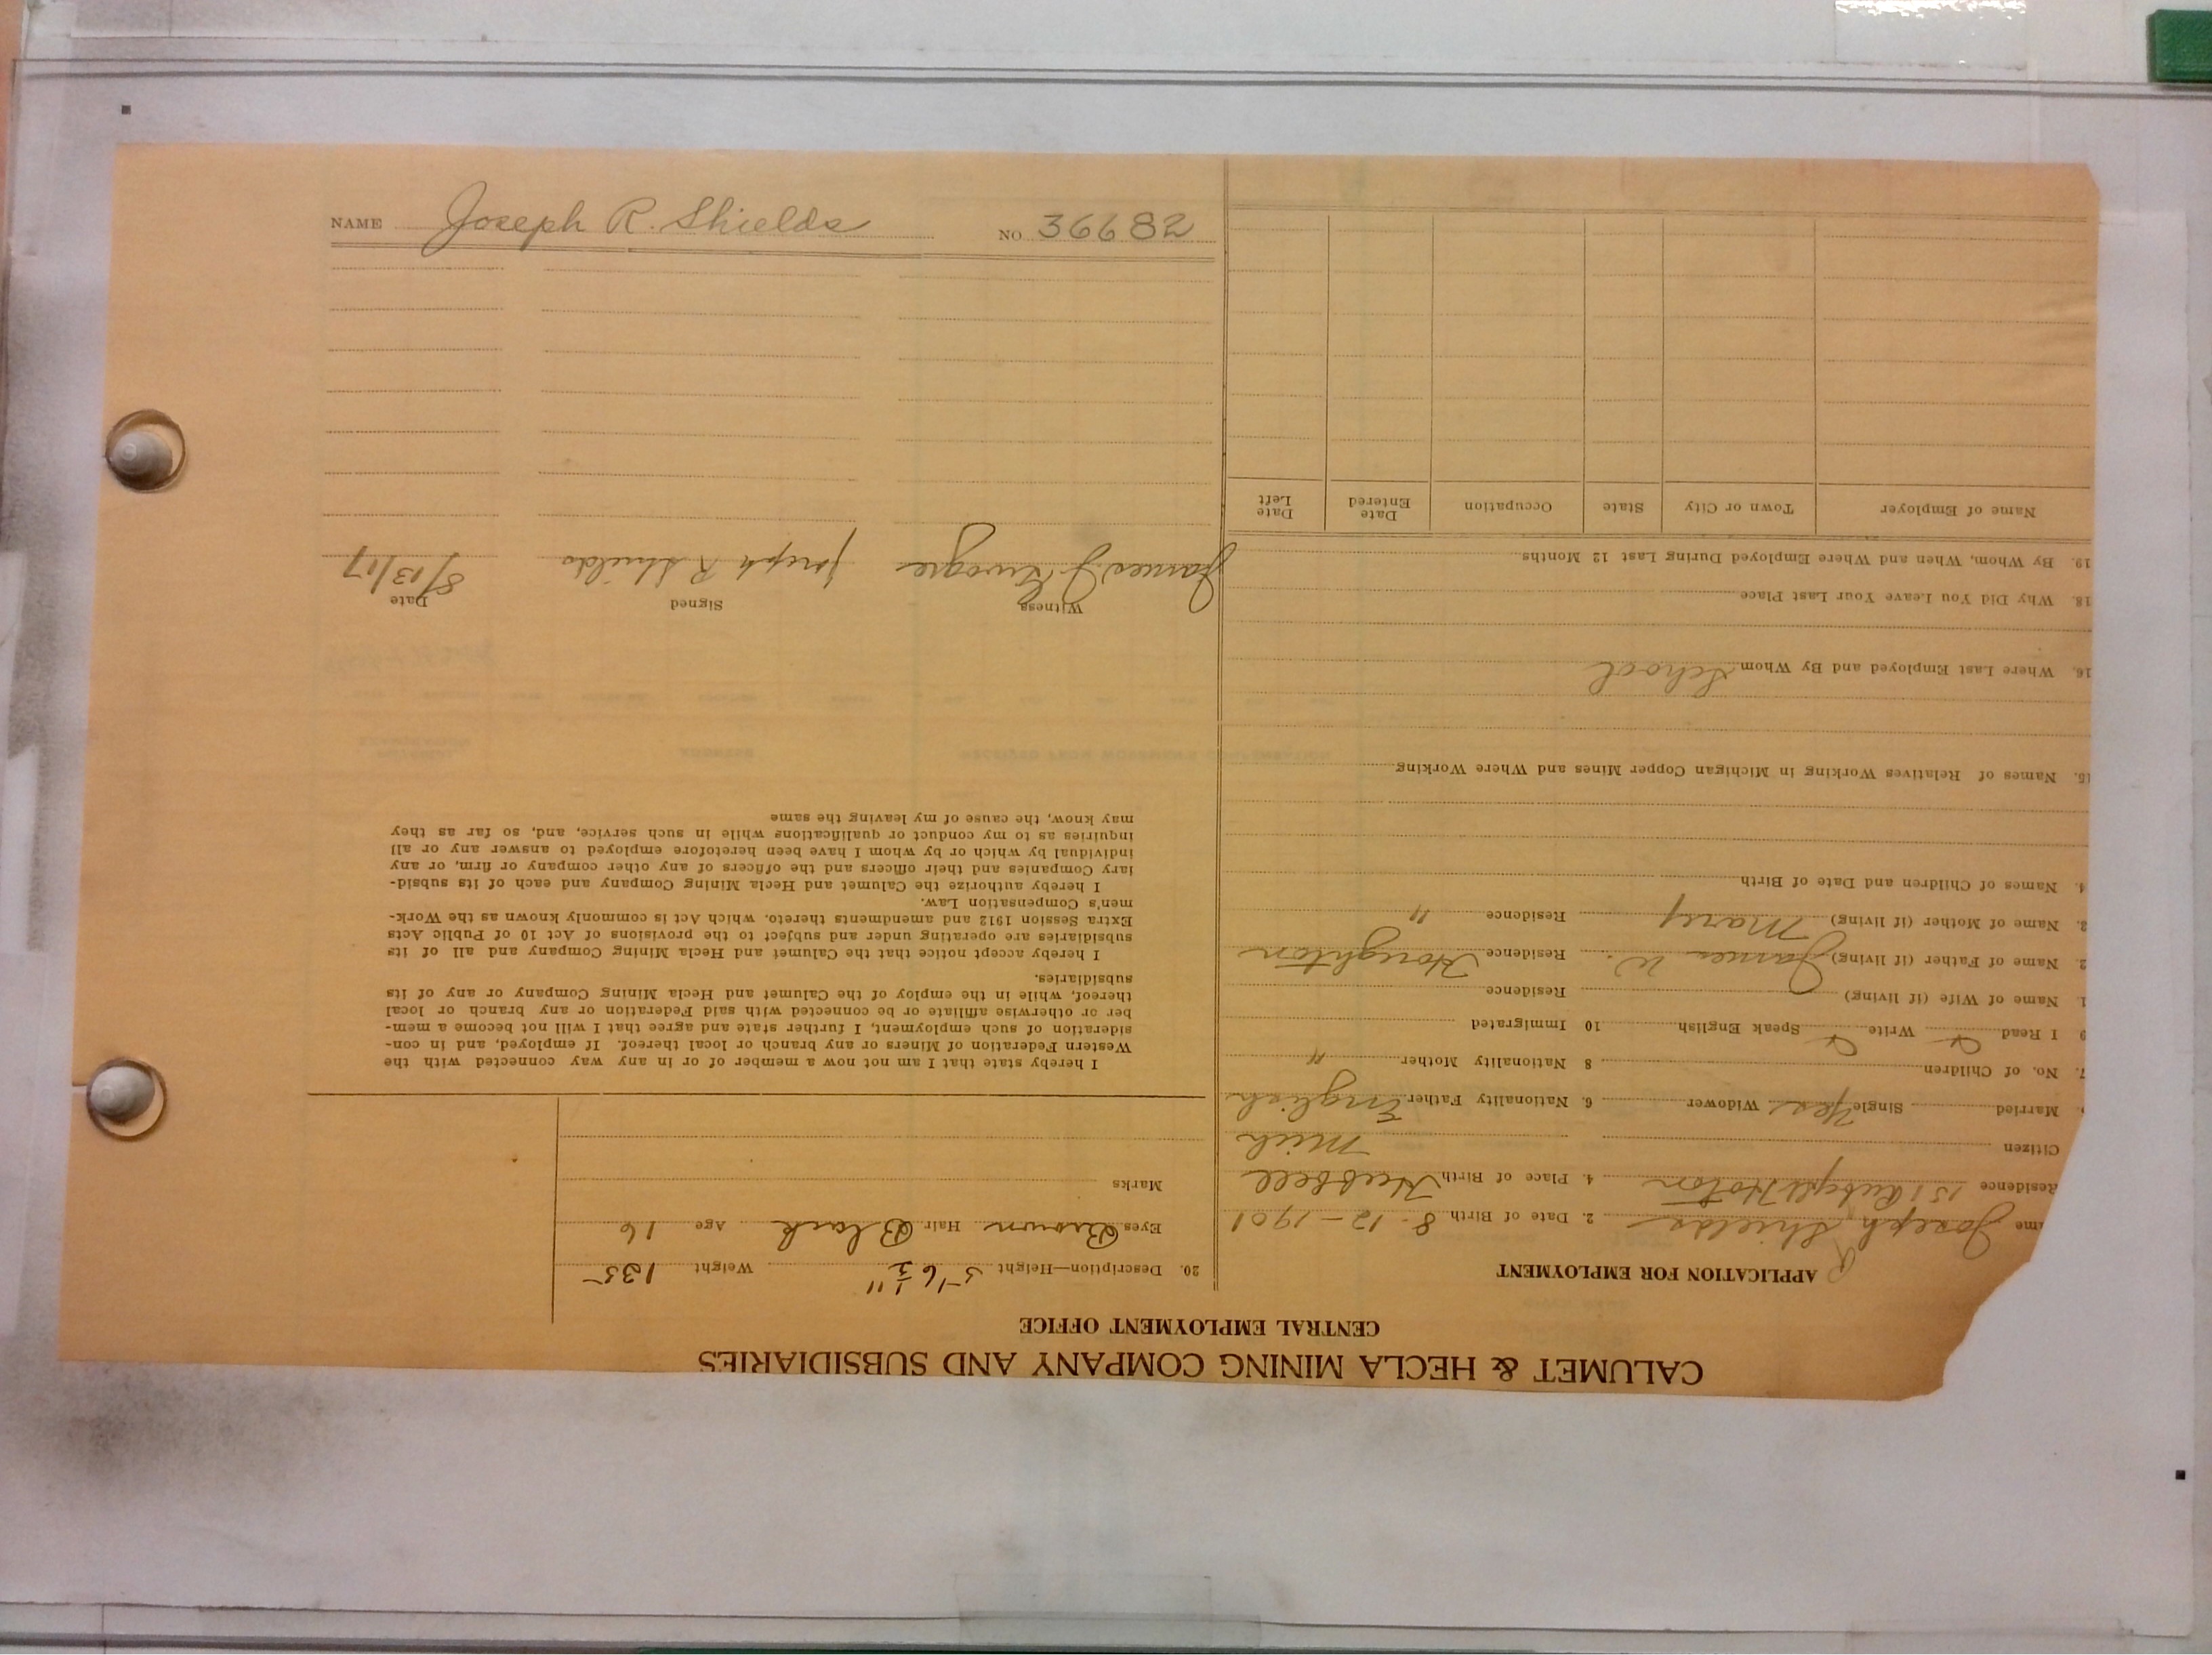 CALUMET & HECLA MINING COMPANY AND SUBSIDIARIES
CENTRAL EMPLOYMENT OFFICE
APPLICATION FOR EMPLOYMENT
ame Joseph R Shields 2. Date of Birth 8-12-1901
Residence 151 Hoton 4. Place of Birth Hubbell
Citizen Mich
Married Single Yes Widower 6. Nationality Father English
7. No. of Children 8 Nationality Mother "
9 I Read Write Speak English 10 Immigrated
1. Name of Wife (if living) Residence
2. Name of Father (if living) James W. Residence Houghton
3. Name of Mother (if living) Mary Residence "
4. Names of Children and Date of Birth
15. Names of Relatives Working in Michigan Copper Mines and Where Working
16. Where Last Employed and By Whom School
18. Why Did You Leave Your Last Place
19. By Whom, When and Where Employed During Last 12 Months
Name of Employer Town or City State Occupation Date Entered Date Left
20. Description—Height 5-6½" Weight 135
Eyes Brown Hair Black Age 16
Marks
I hereby state that I am not now a member of or in any way connected with the
Western Federation of Miners or any branch or local thereof. If employed, and in con-
sideration of such employment, I further state and agree that I will not become a mem-
ber or otherwise affiliate or be connected with said Federation or any branch or local
thereof, while in the employ of the Calumet and Hecla Mining Company or any of its
subsidiaries.
I hereby accept notice that the Calumet and Hecla Mining Company and all of its
subsidiaries are operating under and subject to the provisions of Act 10 of Public Acts
Extra Session 1912 and amendments thereto. which Act is commonly known as the Work-
men's Compensation Law.
I hereby authorize the Calumet and Hecla Mining Company and each of its subsid-
iary Companies and their officers and the officers of any other company or firm, or any
individual by which or by whom I have been heretofore employed to answer any or all
inquiries as to my conduct or qualifications while in such service, and, so far as they
may know, the cause of my leaving the same
Witness Signed Date
James J Joseph R Shields 8/13/17
NAME Joseph R. Shields NO 36682